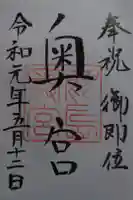 奉祝 御即位
奥宮
令和元年五月十二日